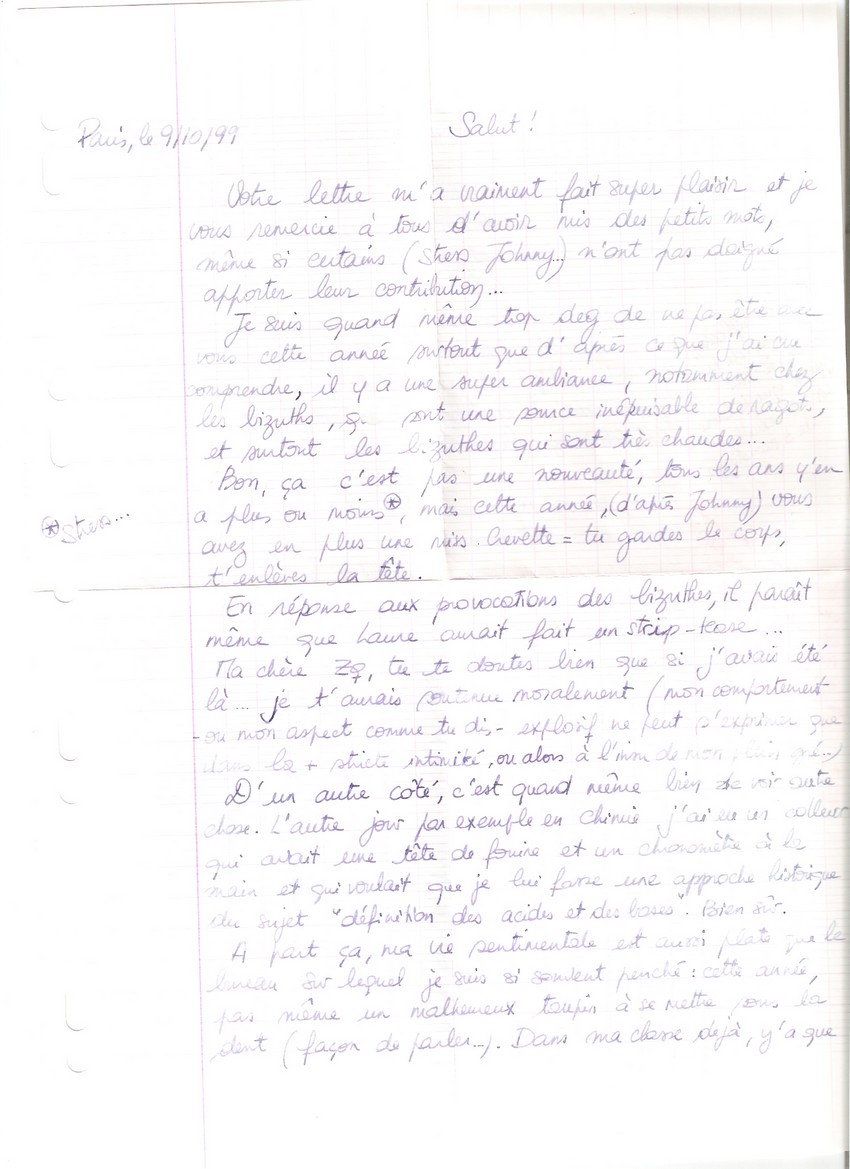 Paris, le 9/10/99
Salut!
Votre lettre m'a vraiment fait super plaisir et je
vous remercie à tous d'avoir mis des petits mots,
même si certains (Stess Johnny..) n'ont pas daigné
apporter leur contribution...
Je suis quand même trop deg de ne pas être avec
vous cette année surtout que d'après ce que j'ai cru
comprendre, il y a une super ambiance, notamment chez
les bizuths, qui sont une source inépuisable de ragots,
et surtout les bizuthes qui sont très chaudes...
Bon, ça c'est pas une nouveauté, tous les ans y'en
a plus ou moins*, mais cette année, (d'après Johnny) vous
* Stess...
avez en plus une miss Crevette = tu gardes le corps,
t'enlèves la tête.
En réponse aux provocations des bizuthes, il paraît
même que Laure aurait fait un strip-tease...
Ma chère Z, tu te doutes bien que si j'avais été
là... je t'aurais soutenue moralement (mon comportement
- ou mon aspect comme tu dis - explosif ne peut s'exprimer que
dans la + stricte intimité, ou alors à l'insu de mon plein gré..)
D'un autre côté, c'est quand même bien de voir autre
chose. L'autre jour par exemple en chimie j'ai eu un colleur
qui avait une tête de fouine et un chronomètre à la
main et qui voulait que je lui fasse une approche historique
du sujet "définition des acides et des bases". Bien sûr.
A part ça, ma vie sentimentale est aussi plate que le
bureau sur lequel je suis si souvent penché : cette année,
pas même un malheureux taupin à se mettre sous la
dent (façon de parler...). Dans ma classe déjà, y'a que